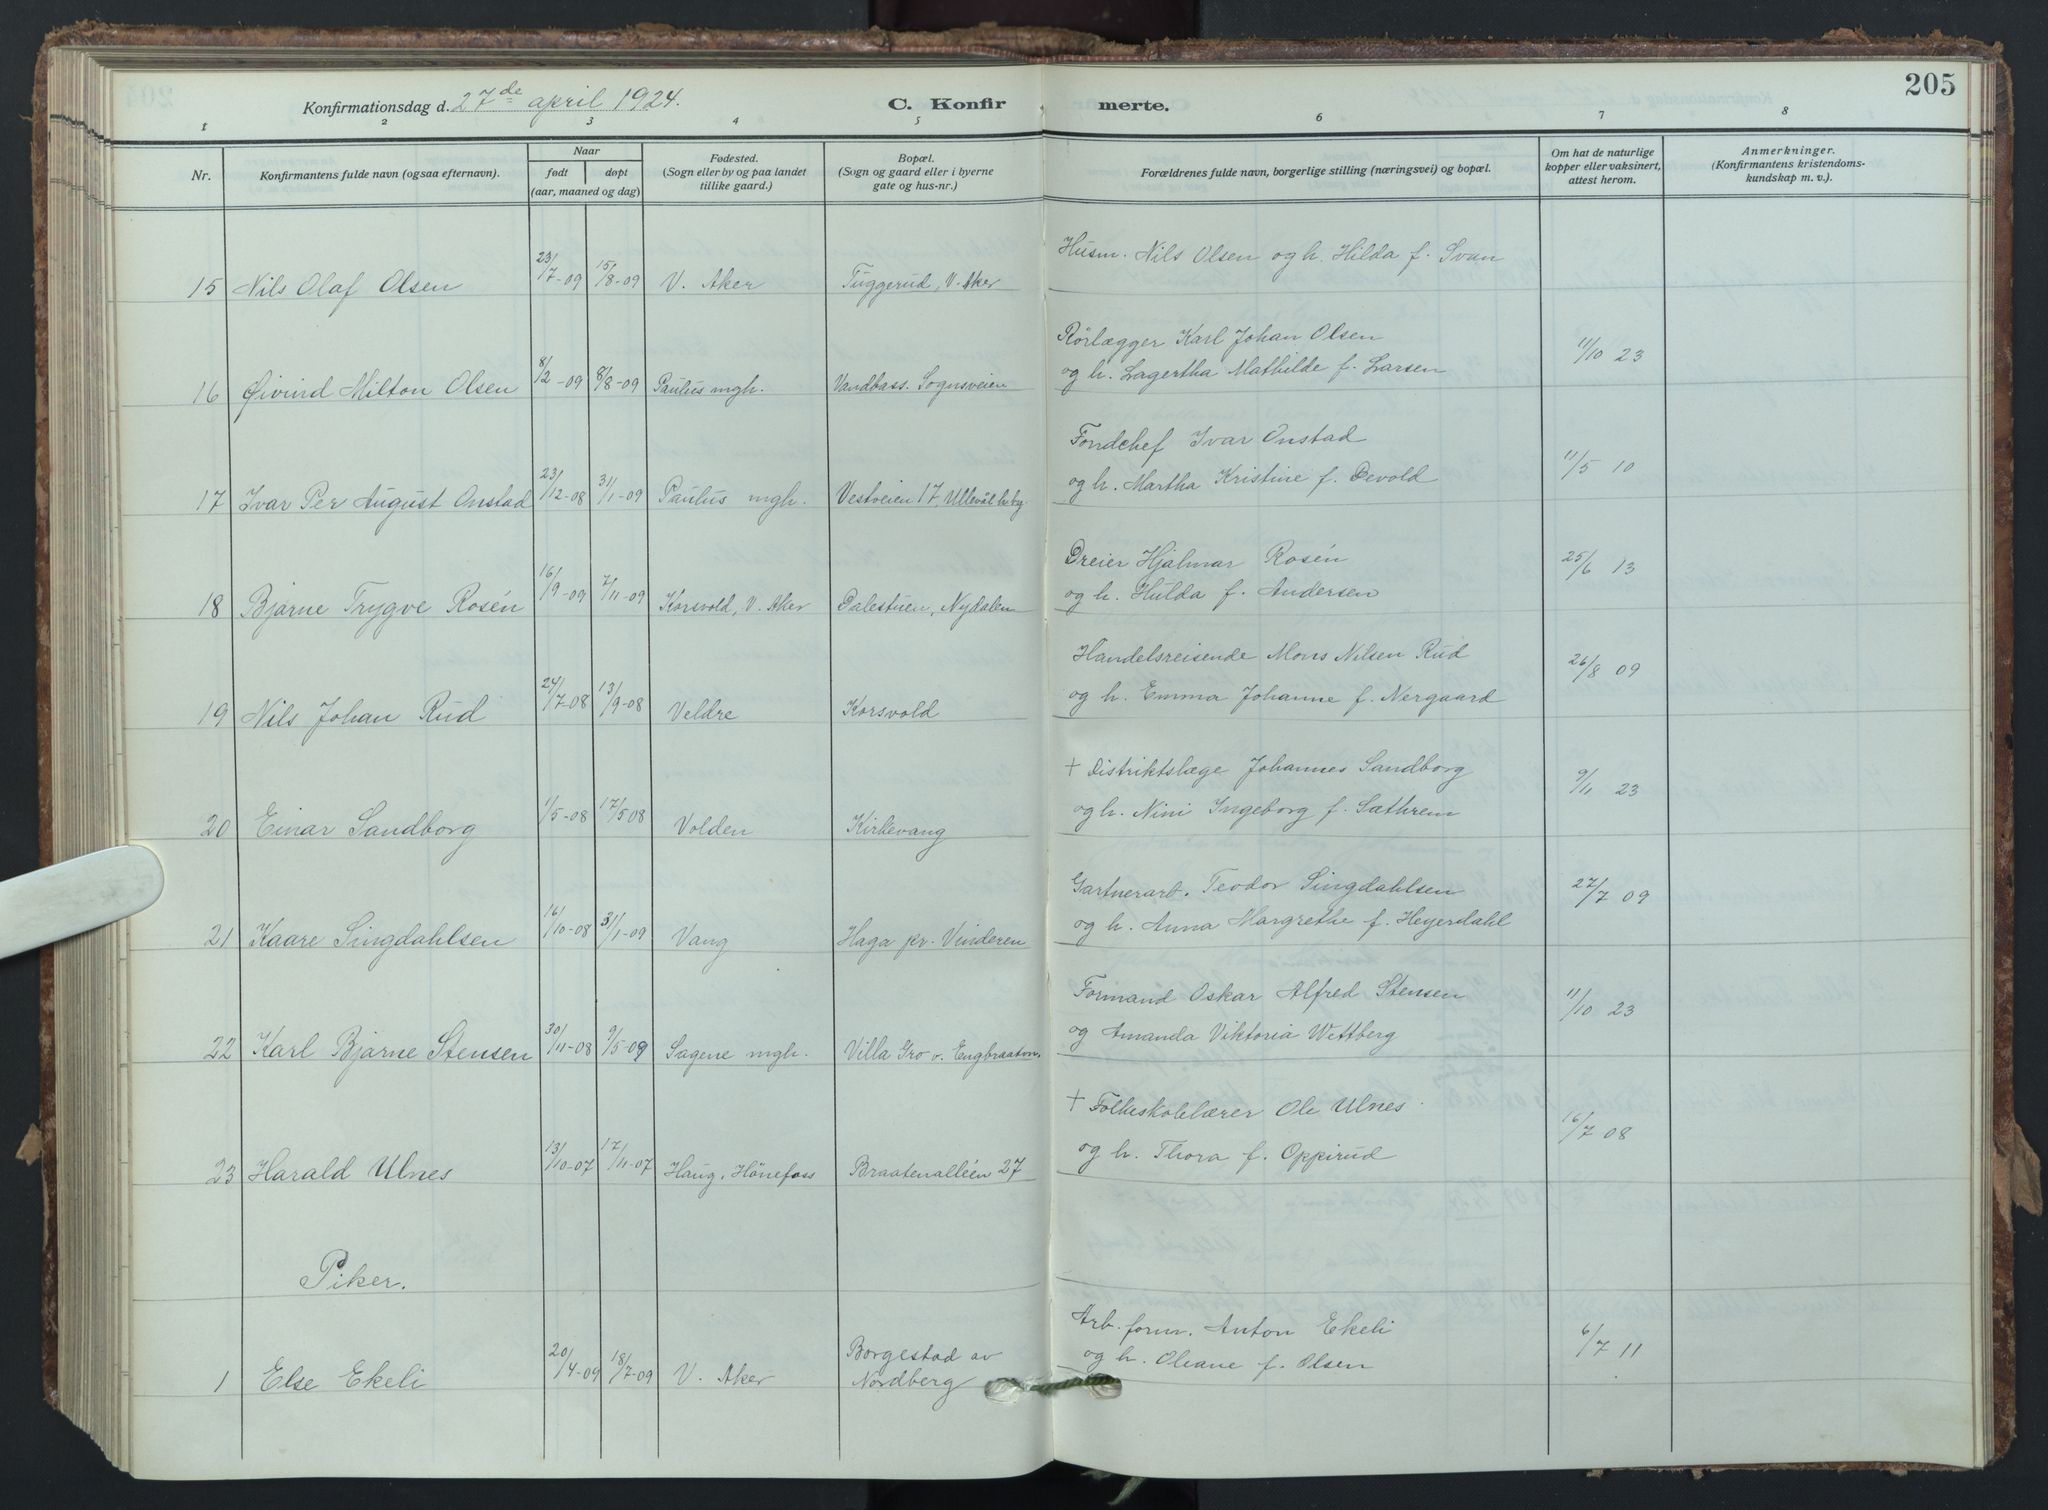 205
Konfirmationsdag d. 27de april 1924.
C. Konfirmerte.
1 2 3 4 5 6 7 8
Nr.
Konfirmantens fulde navn (ogsaa efternavn).
Naar
født døpt
(aar, maaned og dag)
Fødested.
(Sogn eller by og paa landet
tillike gaard.)
Bopæl.
(Sogn og gaard eller i byerne
gate og hus-nr.)
Forældrenes fulde navn, borgerlige stilling (næringsvei) og bopæl.
Om hat de naturlige
kopper eller vaksinert,
attest herom.
Anmerkninger.
(Konfirmantens kristendoms-
kundskap m. v.).
Husm. Nils Olsen og h. Hilda f. Svan
15 Nils Olaf Olsen 23/7-09 15/8-09 V. Aker Tuggerud, V. Aker
Rørlægger Karl Johan Olsen
16 Øivind Milton Olsen 8/2-09 8/8-09 Paulus mgh. Vandbass. Sognsveien og h. Lagertha Mathilde f. Larsen 11/10 23
Fondchef Ivar Onstad
17 Ivar Per August Onstad 23/12-08 31/1-09 Paulus mgh. Vestveien 17, Ullevål hby og h. Martha Kristine f. Devold 11/5 10
Dreier Hjalmar Rosén
18 Bjarne Trygve Rosén 16/9-09 7/11-09 Korsvold, V. Aker Dalestuen, Nydalen og h. Hulda f. Andersen 25/6 13
Handelsreisende Mons Nilsen Rud
19 Nils Johan Rud 24/7-08 13/9-08 Veldre Korsvold og h. Emma Johanne f. Nergaard 26/8 09
+ Distriktslæge Johannes Sandborg
20 Einar Sandborg 1/5-08 17/5 08 Volden Kirkevang og h. Nini Ingeborg f. Sæthrem 9/11 23
Gartnerarb. Teodor Singdahlsen
21 Kaare Singdahlsen 16/10-08 31/1-09 Vang Haga pr. Vinderen og h. Anna Margrethe f. Heyerdahl 27/7 09
Formand Oskar Alfred Stensen
22 Karl Bjarne Stensen 30/11-08 9/5-09 Sagene mgh. Villa Gro v. Engbraaten og Amanda Viktoria Wettberg 11/10 23
+ Folkeskolelærer Ole Ulnes
23 Harald Ulnes 13/10-07 17/11-07 Haug, Hönefoss Braatenalléen 27 og h. Thora f. Oppirud 16/7 08
Piker.
Arb. form. Anton Ekeli
Borgestad av
1 Else Ekeli 20/4-09 18/7-09 V. Aker Nordberg og h. Oleane f. Olsen 6/7 11